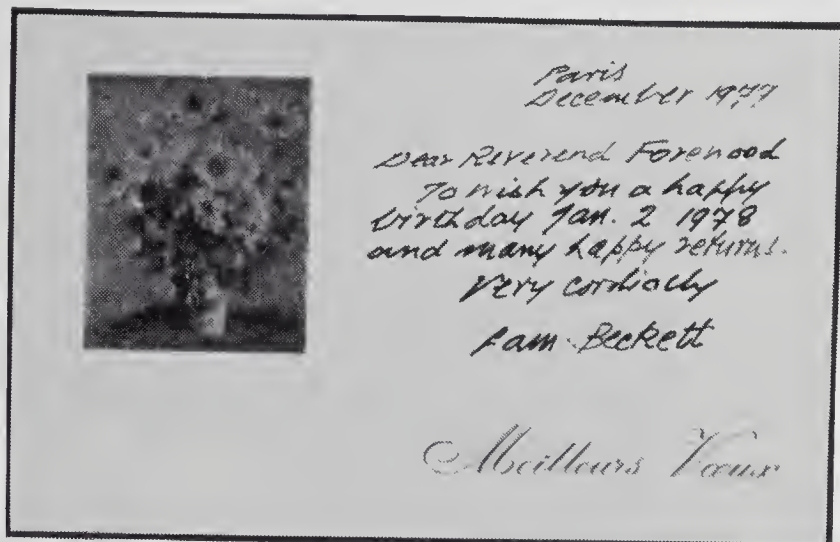 Paris
December 1977
Dear Reverend Forewood
To wish you a happy
birthday Jan. 2 1978
and many happy returns.
Very cordially
Sam. Beckett
Meilleurs Vœux